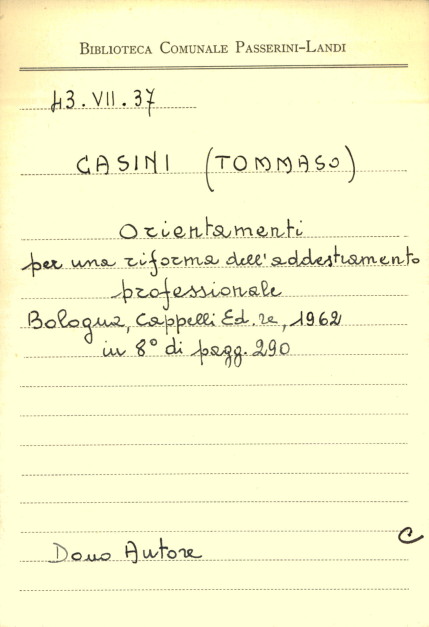 BIBLIOTECA COMUNALE PASSERINI-LANDI
43.VII.37
CASINI (TOMMASO)
Orientamenti
per una riforma dell'addestramento
professionale
Bologna, Cappelli Ed.re, 1962
in 8° di pagg. 290
C
Dono Autore